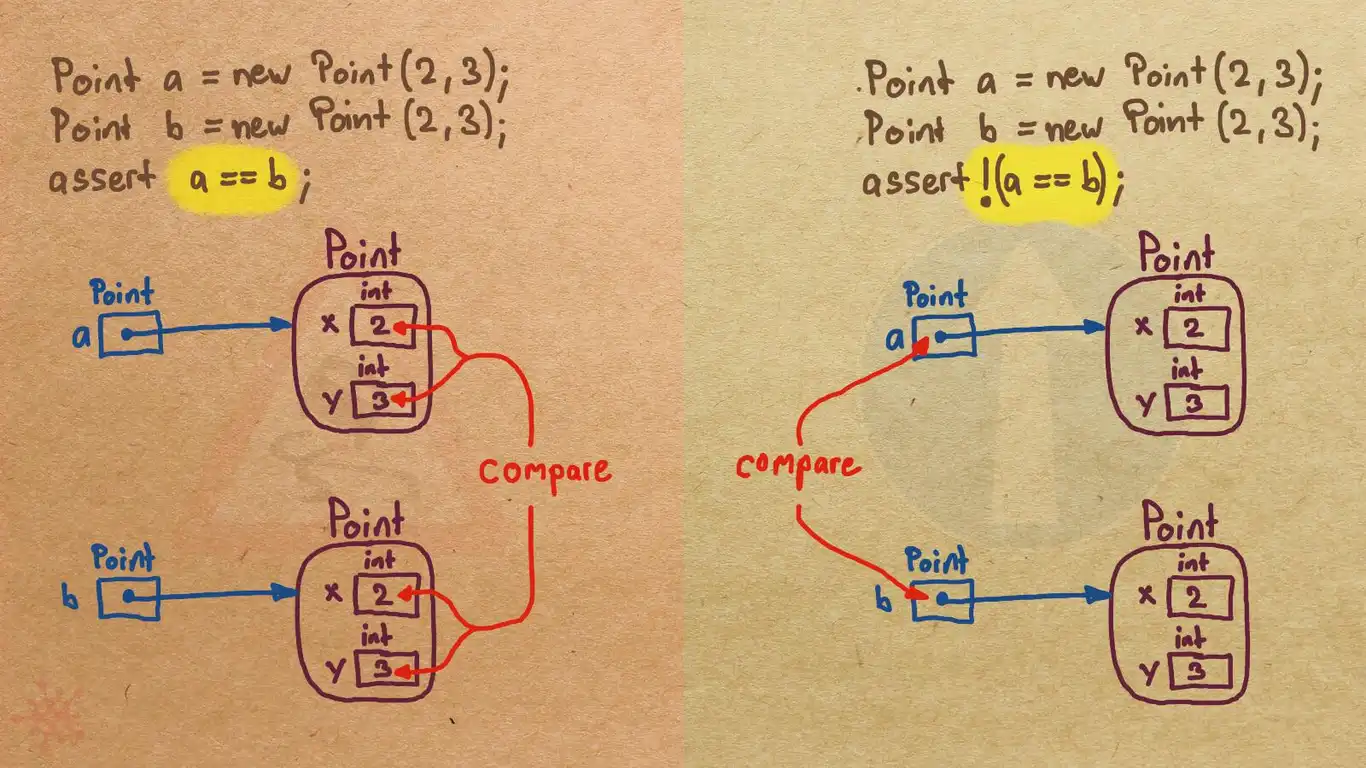 Point a = new Point (2, 3);
Point b = new Point (2, 3);
assert a == b ;
Point
int
Point
x 2
a
int
y 3
compare
Point
int
Point
x 2
b
int
y 3
Point a = new Point (2, 3);
Point b = new Point (2, 3);
assert !(a == b);
Point
int
Point
x 2
a
int
y 3
compare
Point
int
Point
x 2
b
int
y 3